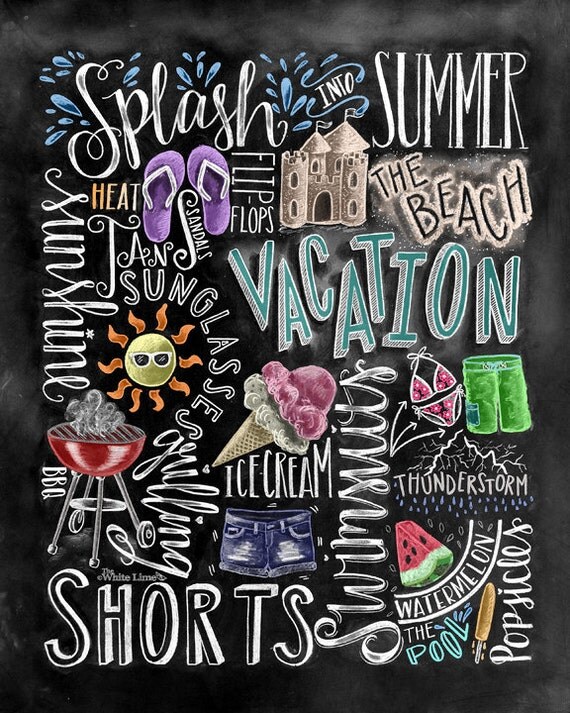 Splash
INTO
SUMMER
THE
BEACH
HEAT
FLIP-
FLOPS
SANDALS
TANS
SUNGLASSES
Sunshine
VACATION
BBQ
Grilling
ICE-CREAM
Swimsuits
THUNDERSTORM
WATERMELON
THE
POOL
Popsicles
SHORTS
©The White Lime